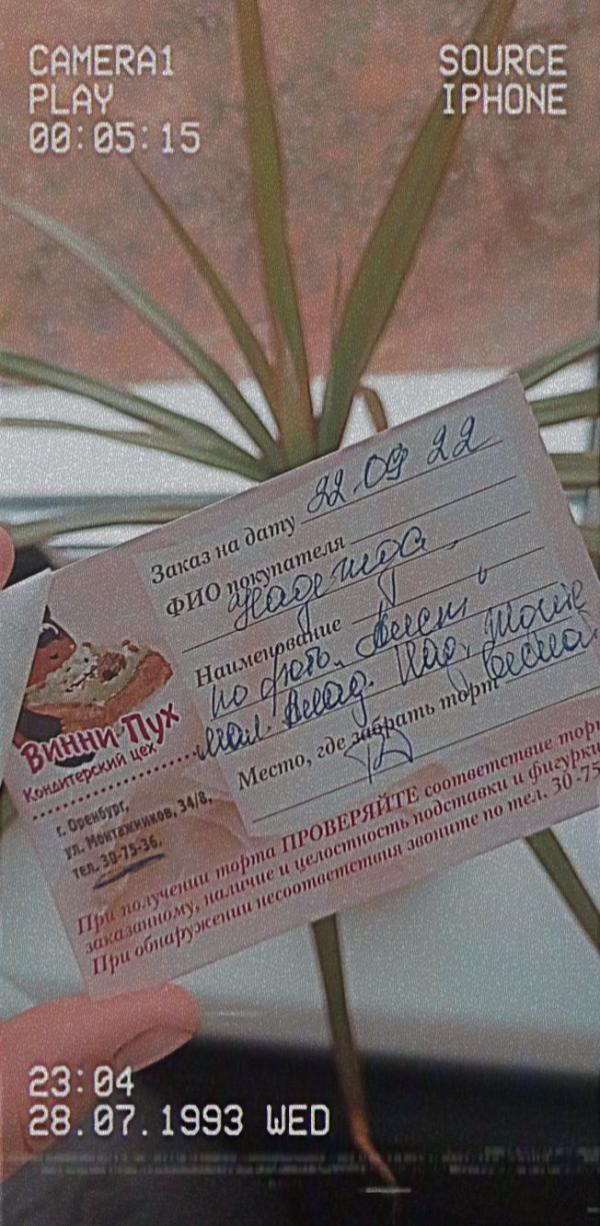 CAMERA1
PLAY
00:05:15
SOURCE
IPHONE
Заказ на дату 22.09 22
ФИО покупателя
Надежда
Наименование
по фото
мал.
Место, где забрать торт
Винни Пух
Кондитерский цех
г. Оренбург,
ул. Монтажников, 34/8,
тел. 30-75-36.
При получении торта ПРОВЕРЯЙТЕ соответствие торт
заказанному, наличие и целостность подставки и фигурки
При обнаружении несоответствия звоните по тел. 30-75
23:04
28.07.1993 WED